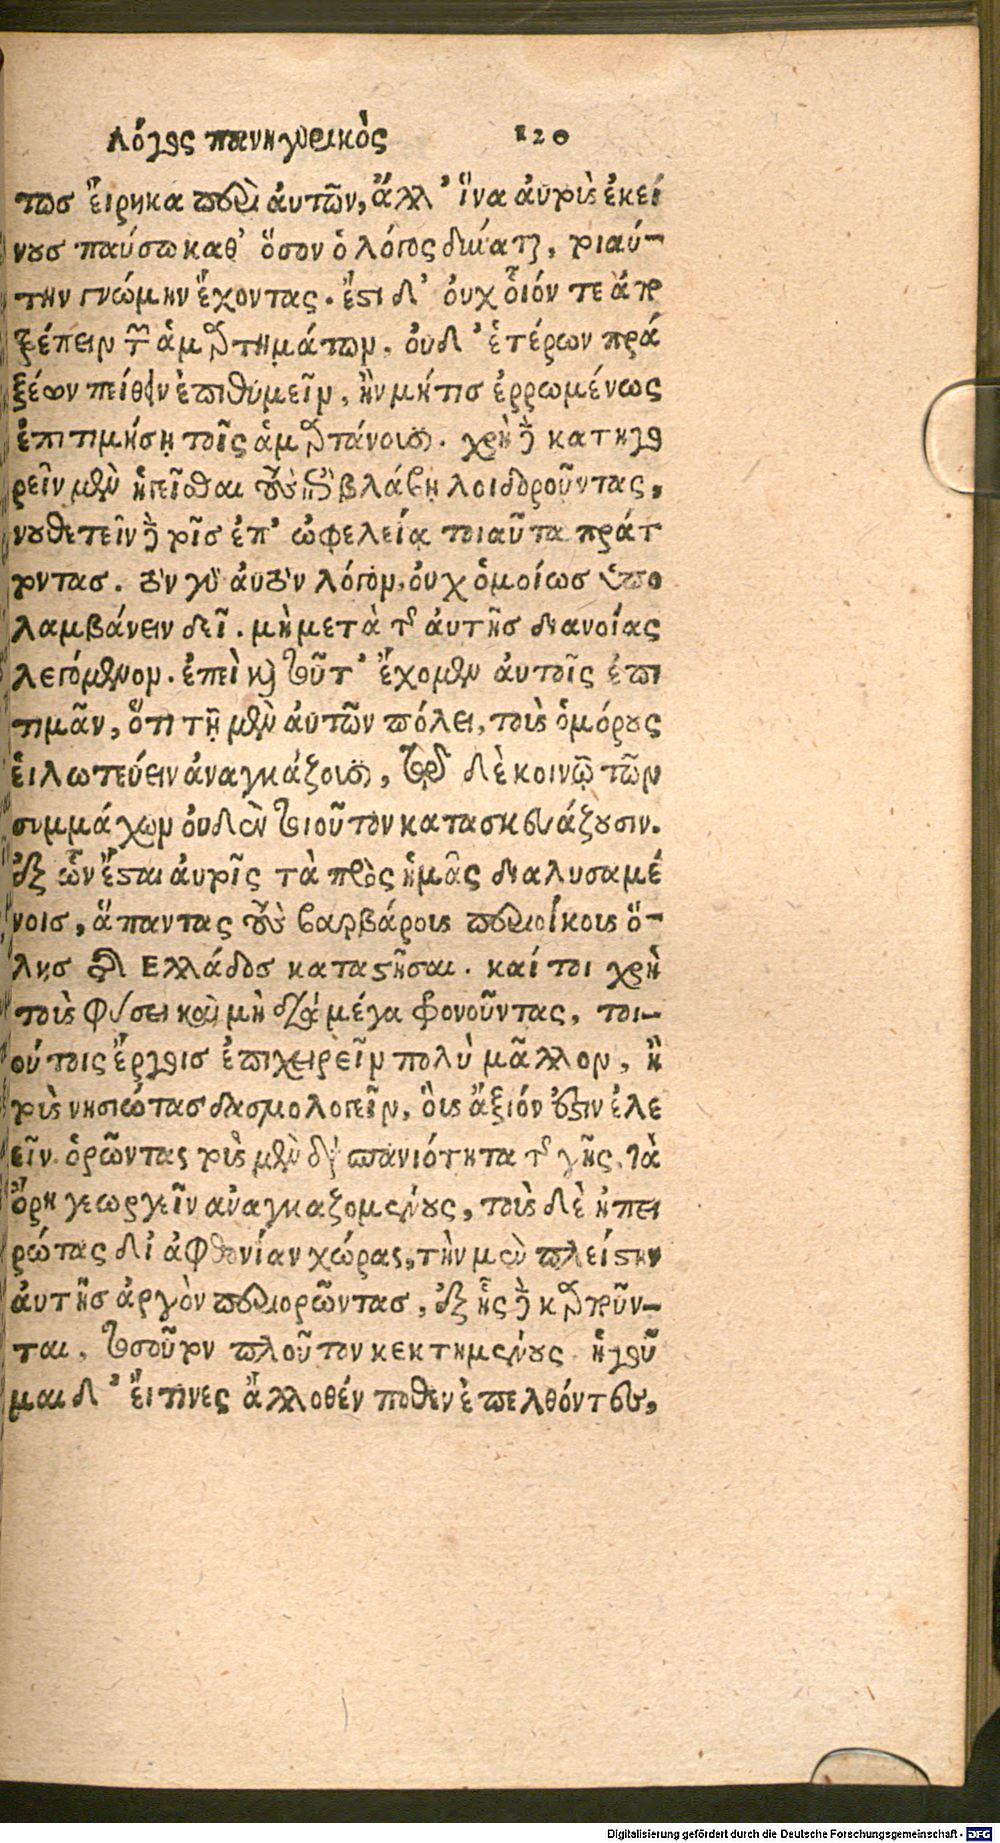 Λόγος πανηγυρικὸς 120
τως ἔιρηκα περὶ ἀυτῶν, ἀλλ' ἵνα ἀυτοὺς ἐκεί
νους παύσω καθ' ὅσον ὁ λόγος δύναται, τοιαύ-
την γνώμην ἔχοντας. ἔστι δ' ὀυχ ὅιόν τε ἀπο
τρέπειν τῶν ἁμαρτημάτων, ὀυδ' ἑτέρων πρά
ξεων πείθειν ἐπιθυμεῖν, ἢν μήτις ἐρρωμένως
ἐπιτιμήσῃ τοῖς ἁμαρτάνουσι. χρὴ δὲ κατηγο
ρεῖν μὲν ἡγεῖσθαι τοὺς ἐπὶ βλάβῃ λοιδοροῦντας,
νουθετεῖν δὲ τοῖς ἐπ' ὠφελείᾳ τοιαῦτα πράτ
τοντας. τὸν γὰρ ἀυτὸν λόγον, ὀυχ ὁμοίως ὑπο
λαμβάνειν δεῖ. μὴ μετὰ τῆς ἀυτῆς διανοίας
λεγόμενον. ἐπεὶ καὶ τοῦτ' ἔχομεν ἀυτοῖς ἐπι
τιμᾶν, ὅτι τῇ μὲν ἀυτῶν πόλει, τοὺς ὁμόρους
ἑιλωτεύειν ἀναγκάζουσι, τῷ δὲ κοινῷ τῶν
συμμάχων ὀυδὲν τοιοῦτον κατασκευάζουσιν.
ἐξ ὧν ἔσται ἀυτοῖς τὰ πρὸς ἡμᾶς διαλυσαμέ
νοις, ἅπαντας τοὺς βαρβάρους περιοίκους ὅ-
λης τῆς Ἑλλάδος καταστῆσαι. καί τοι χρὴ
τοὺς φύσει καὶ μὴ διὰ μέγα φρονοῦντας, τοι-
ούτοις ἔργοις ἐπιχειρεῖν πολὺ μᾶλλον, ἢ
τοὺς νησιώτας δασμολογεῖν, ὃυς ἄξιόν ἐστιν ἐλε
εῖν ὁρῶντας τοὺς μὲν διὰ σπανιότητα τῆς γῆς, τὰ
ὄρη γεωργεῖν ἀναγκαζομένους, τοὺς δὲ ἠπει
ρώτας δι' ἀφθονίαν χώρας, τὴν μὲν πλείστην
ἀυτῆς ἀργὸν περιορῶντας, ἐξ ἧς δὲ καρποῦν-
ται, τοσοῦτον πλοῦτον κεκτημένους. ἡγοῦ
μαι δ' ἔι τινες ἄλλοθέν ποθεν ἐπελθόντες,
Digitalisierung gefördert durch die Deutsche Forschungsgemeinschaft - DFG